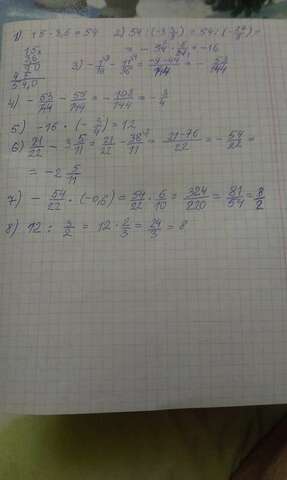 1) 15 · 3,6 = 54 2) 54 : (-3 3/8) = 54 : (-27/8) =
15
3,6
90
45
54,0
= - 54 · 8/27 = -16
3) - 1/16 - 11/36 = -9-44/144 = - 53/144
4) - 53/144 - 55/144 = - 108/144 = - 3/4
5) -16 · (- 3/4) = 12
6) 21/22 - 3 5/11 = 21/22 - 38/11 = 21-76/22 = - 54/22 =
= -2 5/11
7) - 54/22 · (-0,6) = 54/22 · 6/10 = 324/220 = 81/54 = 3/2
8) 12 : 3/2 = 12 · 2/3 = 24/3 = 8